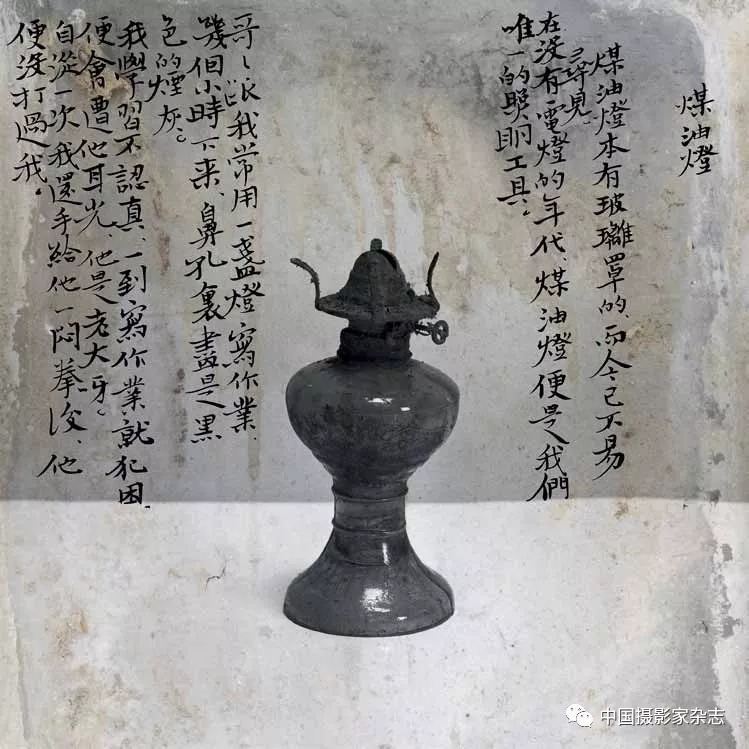 煤油燈
煤油燈本有玻璃罩的、而今已不易
尋見。
在没有電燈的年代、煤油燈便是我們
唯一的照明工具。
哥〻跟我常用一盞燈寫作業、
幾個小時下来、鼻孔裏盡是黑
色的煙灰。
我學習不認真、一到寫作業就犯困、
便會遭他耳光、他是老大呀。
自從一次我還手給他一悶拳後、他
便没打過我。
中国摄影家杂志